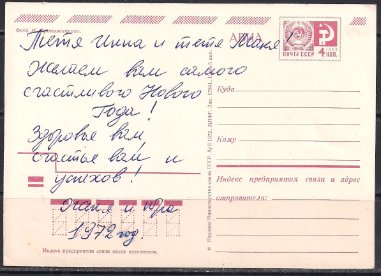 АВИА
ПОЧТА СССР
4 КОП
Тетя Инна и тетя Маня!
Желаем вам самого
счастливого Нового
Года!
Здоровья вам,
счастья вам и
успехов!
Женя и Юра
1972 год.
Куда
Кому
Индекс предприятия связи и адрес
отправителя:
Индекс предприятия связи места назначения.